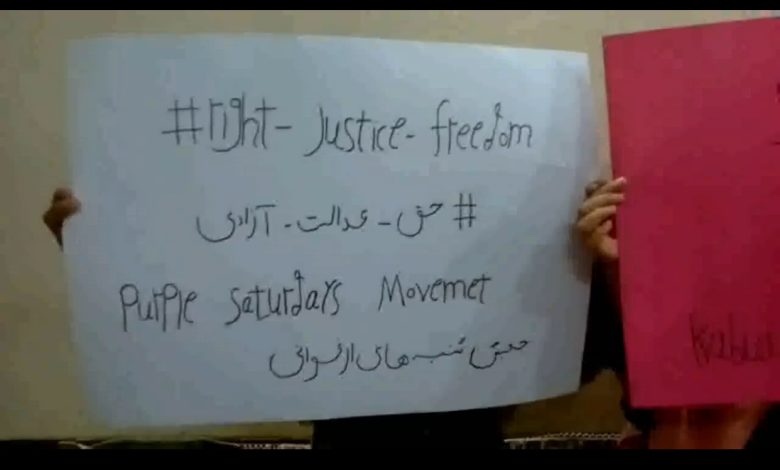 #right- Justice- freedom
# حق - عدالت - آزادی
Purple Saturdays Movemet
جنبش شنبه های ارغوانی